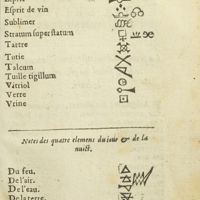 Esprit
Esprit de vin
Sublimer
Stratum superstratum
Tartre
Tutie
Talcum
Tuille
Vitriol
Verre
Vrine
Notes des quatre elemens du iour & de la
nuict.
Du feu.
De l'air.
De l'eau.
De la terre.